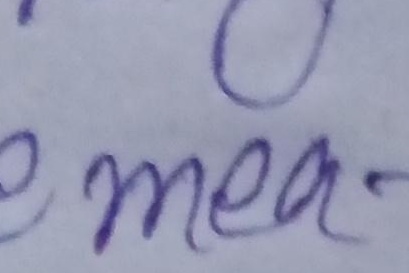 e mea-